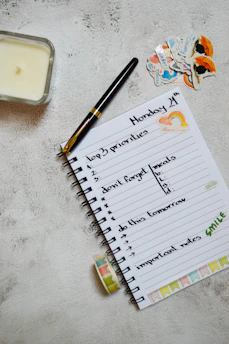 Monday 21th
top 3 priorities
1.
2.
3.
don't forget
meals
b:
l:
d:
do this tomorrow
important notes
SMILE